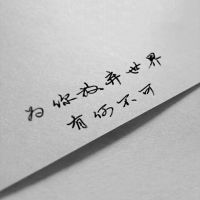 为你放弃世界
有何不可